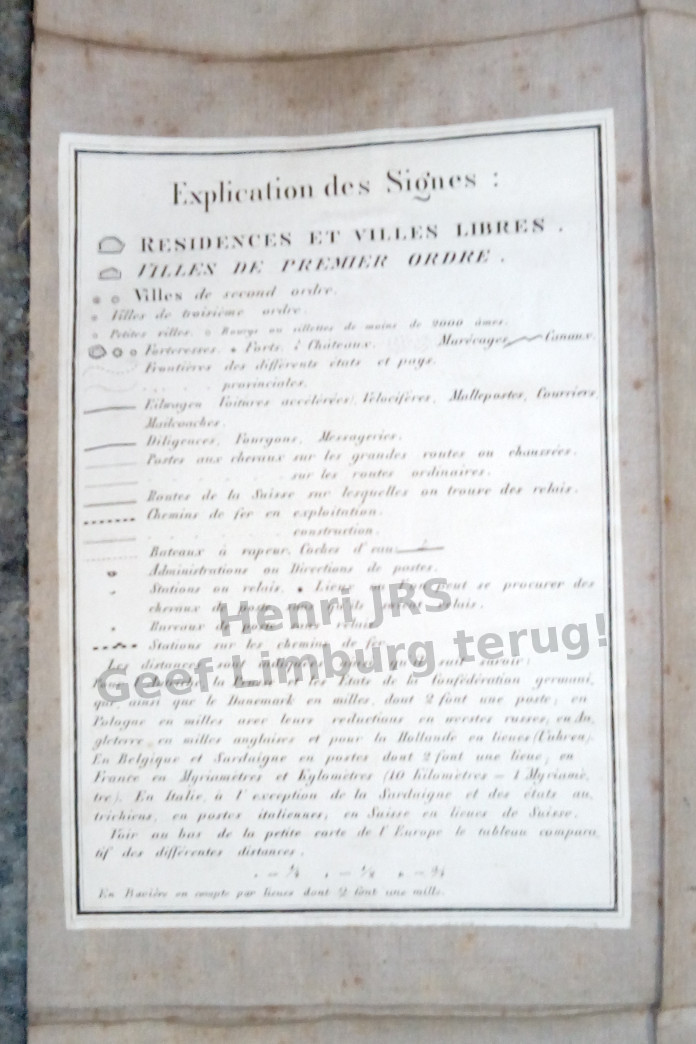 Explication des Signes :
RESIDENCES ET VILLES LIBRES .
VILLES DE PREMIER ORDRE .
Villes de second ordre.
Villes de troisième ordre.
Petites villes. Bourgs ou villettes de moins de 2000 âmes.
Forteresses. Forts. Châteaux. Marécages Canaux.
Frontières des différents états et pays.
provinciales.
Eilwagen Voitures accélérées, Vélocifères, Mallepostes, Courriers,
Mailcoaches.
Diligences, Fourgons, Messageries.
Postes aux chevaux sur les grandes routes ou chaussées.
sur les routes ordinaires.
Routes de la Suisse sur lesquelles on trouve des relais.
Chemins de fer en exploitation.
construction.
Bateaux à vapeur, Coches d'eau
Administrations ou Directions de postes.
Stations ou relais. Lieux où l'on peut se procurer des
chevaux de poste sans qu'ils soient relais.
Bureaux de poste sans relais
Stations sur les chemins de fer
Henri JRS
Geef Limburg terug!
Les distances sont indiquées ainsi qu'il suit savoir:
Pour l'Autriche la Prusse et les Etats de la Confédération germani,
que, ainsi que le Danemark en milles, dont 2 font une poste; en
Pologne en milles avec leurs reductions en werstes russes, en An,
gleterre en milles anglaises et pour la Hollande en lieues (Uuhren).
En Belgique et Sardaigne en postes dont 2 font une lieue; en
France en Myriamètres et Kylomètres (10 kilomètres = 1 Myriamè,
tre). En Italie, à l'exception de la Sardaigne et des états au,
trichiens, en postes italiennes; en Suisse en lieues de Suisse.
Voir au bas de la petite carte de l'Europe le tableau compara,
tif des différentes distances.
= ¼ = ½ = ¾
En Bavière on compte par lieues dont 2 font une mille.